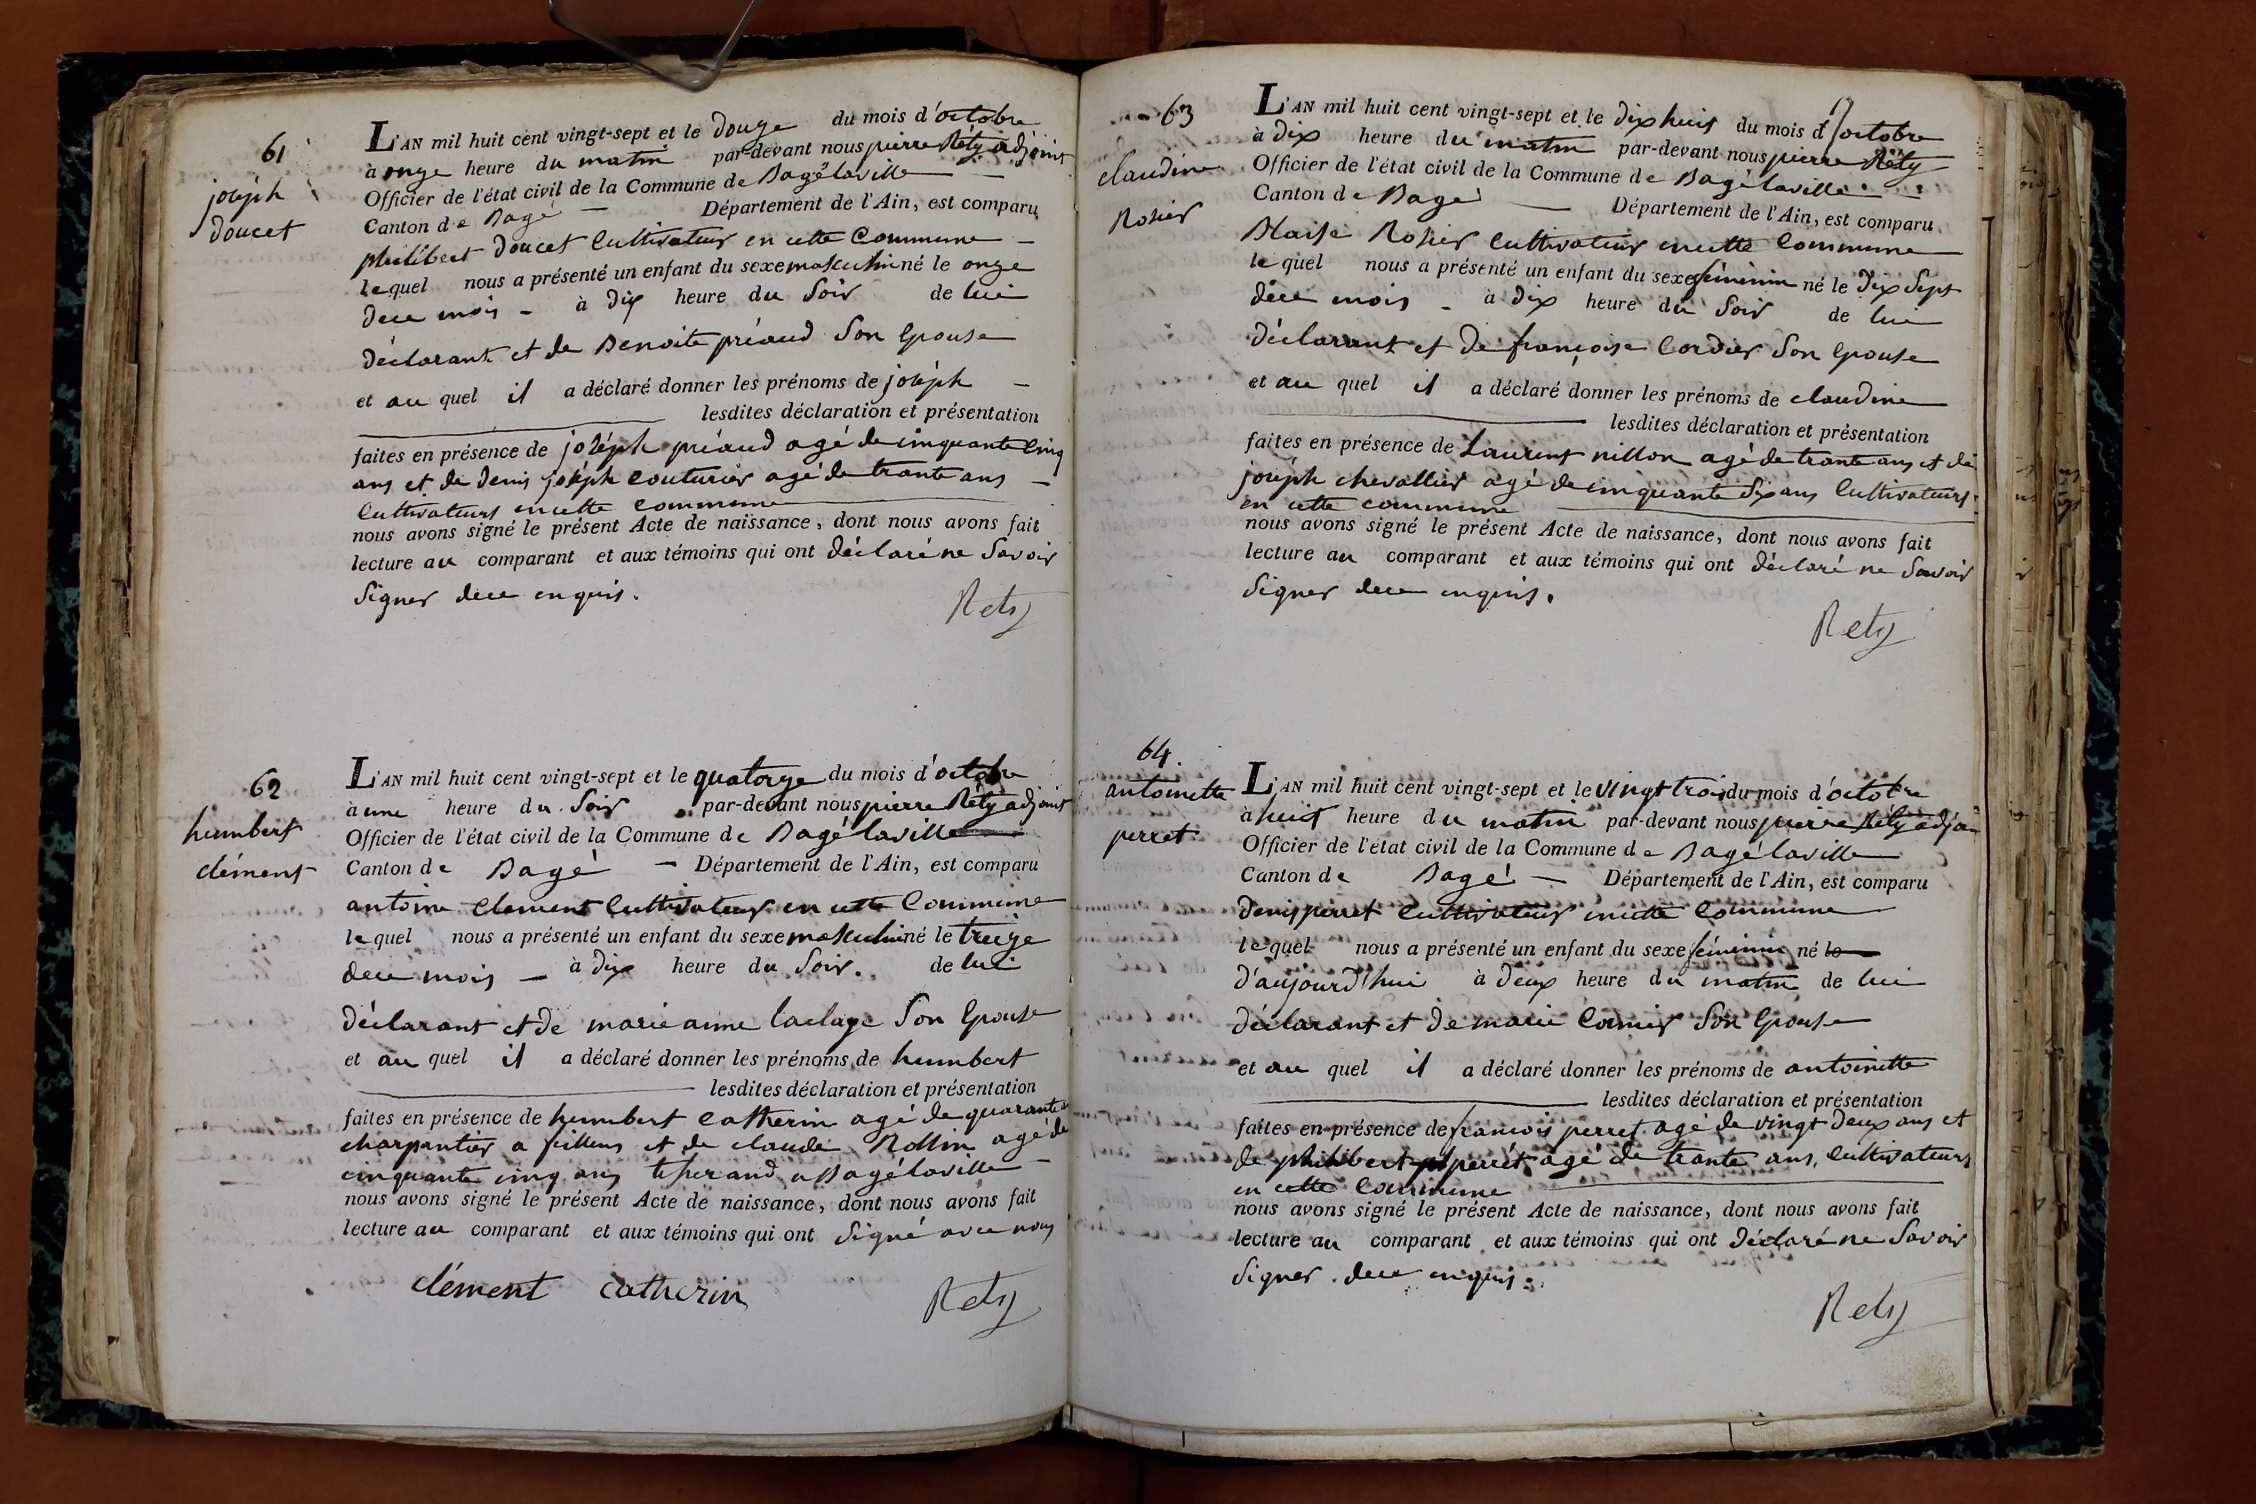 61
joséph
doucet
L'AN mil huit cent vingt-sept et le douze du mois d'octobre
à onze heure du matin par-devant nous pierre Réty adjoint
Officier de l'état civil de la Commune de Bagélaville
Canton de Bagé — Département de l'Ain, est comparu
philibert doucet Cultivateur en cette Commune —
lequel nous a présenté un enfant du sexe masculin né le onze
dece mois - à dix heure du Soir de lui
déclarant et de Benoite préaud Son Epouse
et au quel il a déclaré donner les prénoms de joséph —
lesdites déclaration et présentation
faites en présence de joséph préaud agé de cinquante cinq
ans et de denis joséph couturier agé de trante ans —
Cultivateurs en cette commune
nous avons signé le présent Acte de naissance, dont nous avons fait
lecture au comparant et aux témoins qui ont déclaré ne Savoir
Signer dece enquis.
Rety
62
humbert
clément
L'AN mil huit cent vingt-sept et le quatorze du mois d'octobre
à une heure du Soir par-devant nous pierre Réty adjoint
Officier de l'état civil de la Commune de Bagélaville
Canton de Bagé — Département de l'Ain, est comparu
antoine Clement Cultivateur en cette Commune
lequel nous a présenté un enfant du sexe masculin né le treize
dece mois — à dix heure du Soir. de lui
déclarant et de marie anne Son Epouse
et au quel il a déclaré donner les prénoms de humbert
lesdites déclaration et présentation
faites en présence de humbert Catherin agé de quarante
charpentier a et de claude Rollin agé de
cinquante cinq ans tisserand a Bagélaville —
nous avons signé le présent Acte de naissance, dont nous avons fait
lecture au comparant et aux témoins qui ont Signé avec nous
clément catherin Rety
63
claudine
Rosier
L'AN mil huit cent vingt-sept et le dix huit du mois d'octobre
à dix heure du matin par-devant nous pierre Réty
Officier de l'état civil de la Commune de Bagélaville
Canton de Bagé — Département de l'Ain, est comparu
Blaise Rosier Cultivateur en cette Commune
lequel nous a présenté un enfant du sexe féminin né le dix Sept
dece mois - à dix heure du Soir de lui
déclarant et de françoise Cordier Son Epouse
et au quel il a déclaré donner les prénoms de claudine
lesdites déclaration et présentation
faites en présence de Laurent nillon agé de trante ans et de
joséph chevallier agé de cinquante Six ans Cultivateurs
en cette commune
nous avons signé le présent Acte de naissance, dont nous avons fait
lecture au comparant et aux témoins qui ont déclaré ne Savoir
Signer dece enquis.
Rety
64.
antoinette
perret
L'AN mil huit cent vingt-sept et le vingt trois du mois d'octobre
à huit heure du matin par-devant nous pierre Réty adjoin
Officier de l'état civil de la Commune de Bagélaville
Canton de Bagé — Département de l'Ain, est comparu
denis perret Cultivateur en cette Commune
lequel nous a présenté un enfant du sexe féminin né le
d'aujourd'hui à deux heure du matin de lui
déclarant et de marie Cornier Son Epouse
et au quel il a déclaré donner les prénoms de antoinette
lesdites déclaration et présentation
faites en présence de francois perret agé de vingt deux ans et
de philibert perrét agé de trante ans, Cultivateurs
en cette Commune
nous avons signé le présent Acte de naissance, dont nous avons fait
lecture au comparant et aux témoins qui ont déclaré ne Savoir
Signer. dece enquis.
Rety